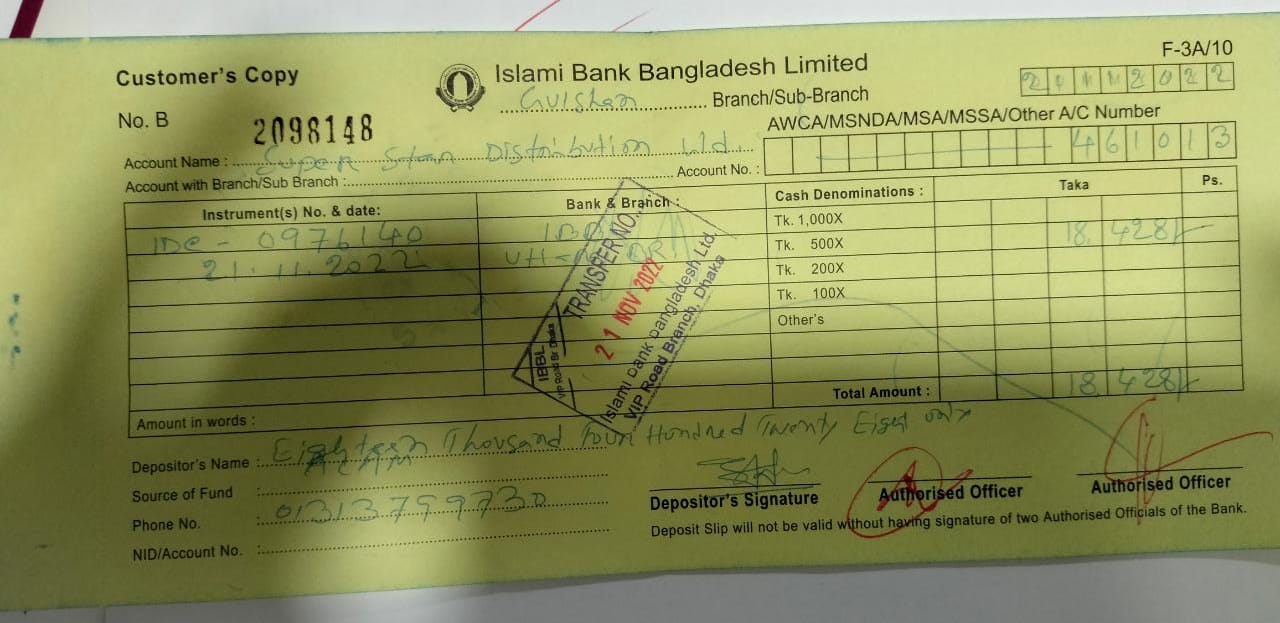 F-3A/10
Customer's Copy
Islami Bank Bangladesh Limited
21112022
Gulshan Branch/Sub-Branch
No. B 2098148
AWCA/MSNDA/MSA/MSSA/Other A/C Number
Account Name : Super Star Distribution Ltd.
Account No. : 461013
Account with Branch/Sub Branch :
Instrument(s) No. & date: Bank & Branch : Cash Denominations : Taka Ps.
IDC - 0976140
21.11.2022
Tk. 1,000X 18,428/-
Tk. 500X
Tk. 200X
Tk. 100X
Other's
TRANSFER NO.
21 NOV 2022
Islami bank bangladesh Ltd.
VIP Road Branch, Dhaka
IBBL
VIP Road Br. Dhaka
Total Amount : 18,428/-
Amount in words : Eighteen Thousand Four Hundred Twenty Eight only
Depositor's Name :
Source of Fund :
Phone No. : 01313799730
NID/Account No. :
Depositor's Signature
Authorised Officer
Authorised Officer
Deposit Slip will not be valid without having signature of two Authorised Officials of the Bank.